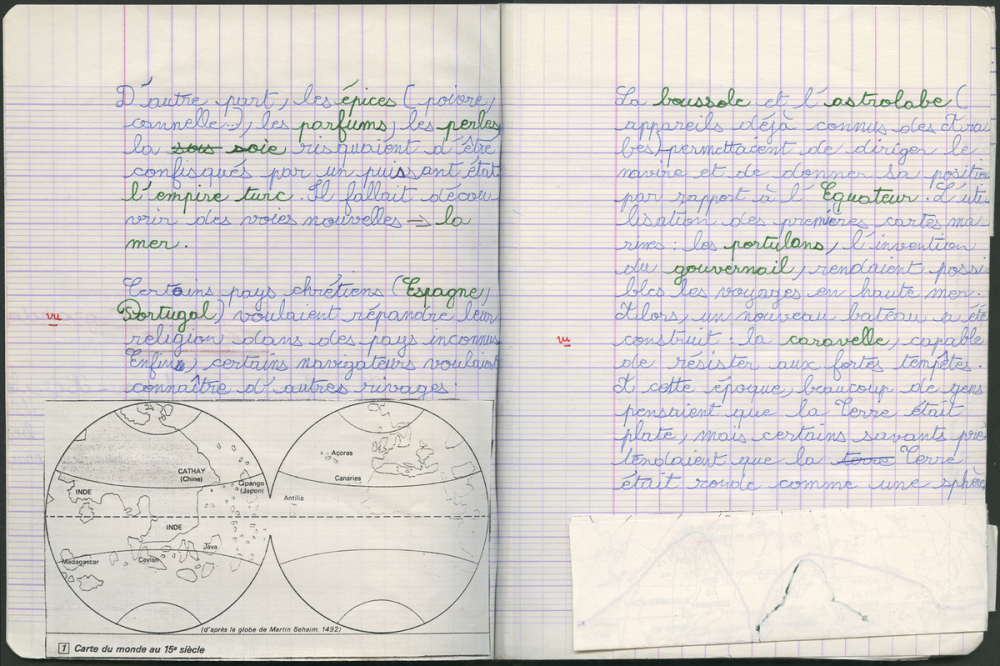 D'autre part, les épices (poivre,
cannelle..), les parfums, les perles
la sous soie risquaient d'être
confisqués par un puissant état
l'empire turc. Il fallait décou
vrir des voies nouvelles → la
mer.
Certains pays chrétiens (Espagne,
Portugal) voulaient répandre leur
vu
religion dans des pays inconnus
Enfin, certains navigateurs voulaient
connaître d'autres rivages.
Açores
CATHAY
(Chine)
Canaries
Cipango
(Japon)
INDE
Antilia
INDE
Java
Madagascar
Ceylan
(d'après le globe de Martin Behaim. 1492)
1 Carte du monde au 15e siècle
La boussole et l'astrolabe (
appareils déjà connus des Ara
bes) permettaient de diriger le
navire et de donner sa position
par rapport à l'Equateur. L'uti
lisation des premières cartes ma
rines : les portulans, l'invention
du gouvernail, rendaient possi
bles les voyages en haute mer.
Alors, un nouveau bateau a été
vu
construit : la caravelle, capable
de résister aux fortes tempêtes.
A cette époque, beaucoup de gens
pensaient que la Terre était
plate, mais certains savants pré
tendaient que la terre Terre
était ronde comme une sphère